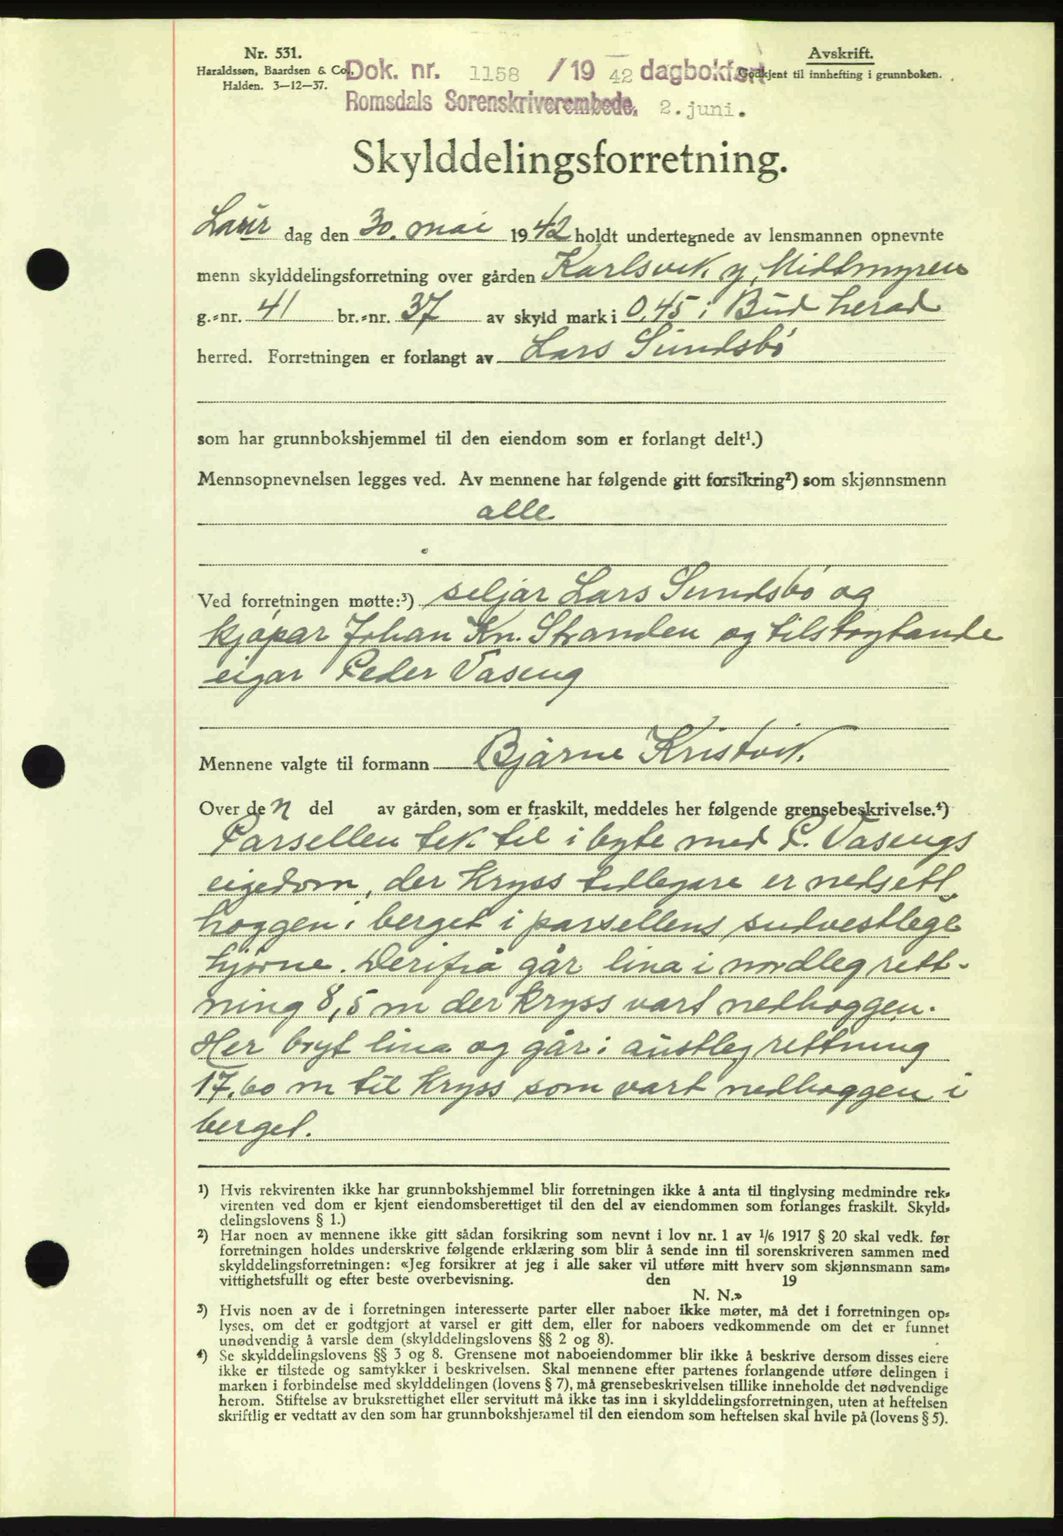 Nr. 531.
Haraldssøn, Baardsen & Co.
Halden. 3—12—37.
Avskrift.
Godkjent til innhefting i grunnboken.
Dok. nr. 1158 /19 42 dagbokført
Romsdals Sorenskriverembede. 2. juni.
Skylddelingsforretning.
Laur dag den 30. mai 1942 holdt undertegnede av lensmannen opnevnte
menn skylddelingsforretning over gården Karlsvik y. Midtmyren
g.-nr. 41 br.-nr. 37 av skyld mark i 0,45 i Bud herad
herred. Forretningen er forlangt av Lars Sundsbö
som har grunnbokshjemmel til den eiendom som er forlangt delt¹.)
Mennsopnevnelsen legges ved. Av mennene har følgende gitt forsikring²) som skjønnsmenn
alle
Ved forretningen møtte:³) seljar Lars Sundsbö og
kjöpar Johan Kn. Stranden og tilstøytande
eigar Peder Vaseng
Mennene valgte til formann Bjarne Kristvik.
Over den del av gården, som er fraskilt, meddeles her følgende grensebeskrivelse.⁴)
Parsellen tek til i byte med P. Vasengs
eigedom, der Kryss tidlegare er nedsett
hoggen i berget i parsellens sudvestlege
hjörne. Derifrå går lina i nordleg rett-
ning 8,5 m der kryss vart nedhoggen.
Her bryt lina og går i austleg rettning
17.60 m til Kryss som vart nedhoggen i
berget.
¹) Hvis rekvirenten ikke har grunnbokshjemmel blir forretningen ikke å anta til tinglysing medmindre rek-
virenten ved dom er kjent eiendomsberettiget til den del av eiendommen som forlanges fraskilt. Skyld-
delingslovens § 1.)
²) Har noen av mennene ikke gitt sådan forsikring som nevnt i lov nr. 1 av 1/6 1917 § 20 skal vedk. før
forretningen holdes underskrive følgende erklæring som blir å sende inn til sorenskriveren sammen med
skylddelingsforretningen: «Jeg forsikrer at jeg i alle saker vil utføre mitt hverv som skjønnsmann sam-
vittighetsfullt og efter beste overbevisning. den 19
N. N.»
³) Hvis noen av de i forretningen interesserte parter eller naboer ikke møter, må det i forretningen op-
lyses, om det er godtgjort at varsel er gitt dem, eller for naboers vedkommende om det er funnet
unødvendig å varsle dem (skylddelingslovens §§ 2 og 8).
⁴) Se skylddelingslovens §§ 3 og 8. Grensene mot naboeiendommer blir ikke å beskrive dersom disses eiere
ikke er tilstede og samtykker i beskrivelsen. Skal mennene efter partenes forlangende utføre delingen i
marken i forbindelse med skylddelingen (lovens § 7), må grensebeskrivelsen tillike inneholde det nødvendige
herom. Stiftelse av bruksrettighet eller servitutt må ikke tas inn i skylddelingsforretningen, uten at heftelsen
skriftlig er vedtatt av den som har grunnbokshjemmel til den eiendom som heftelsen skal hvile på (lovens § 5).